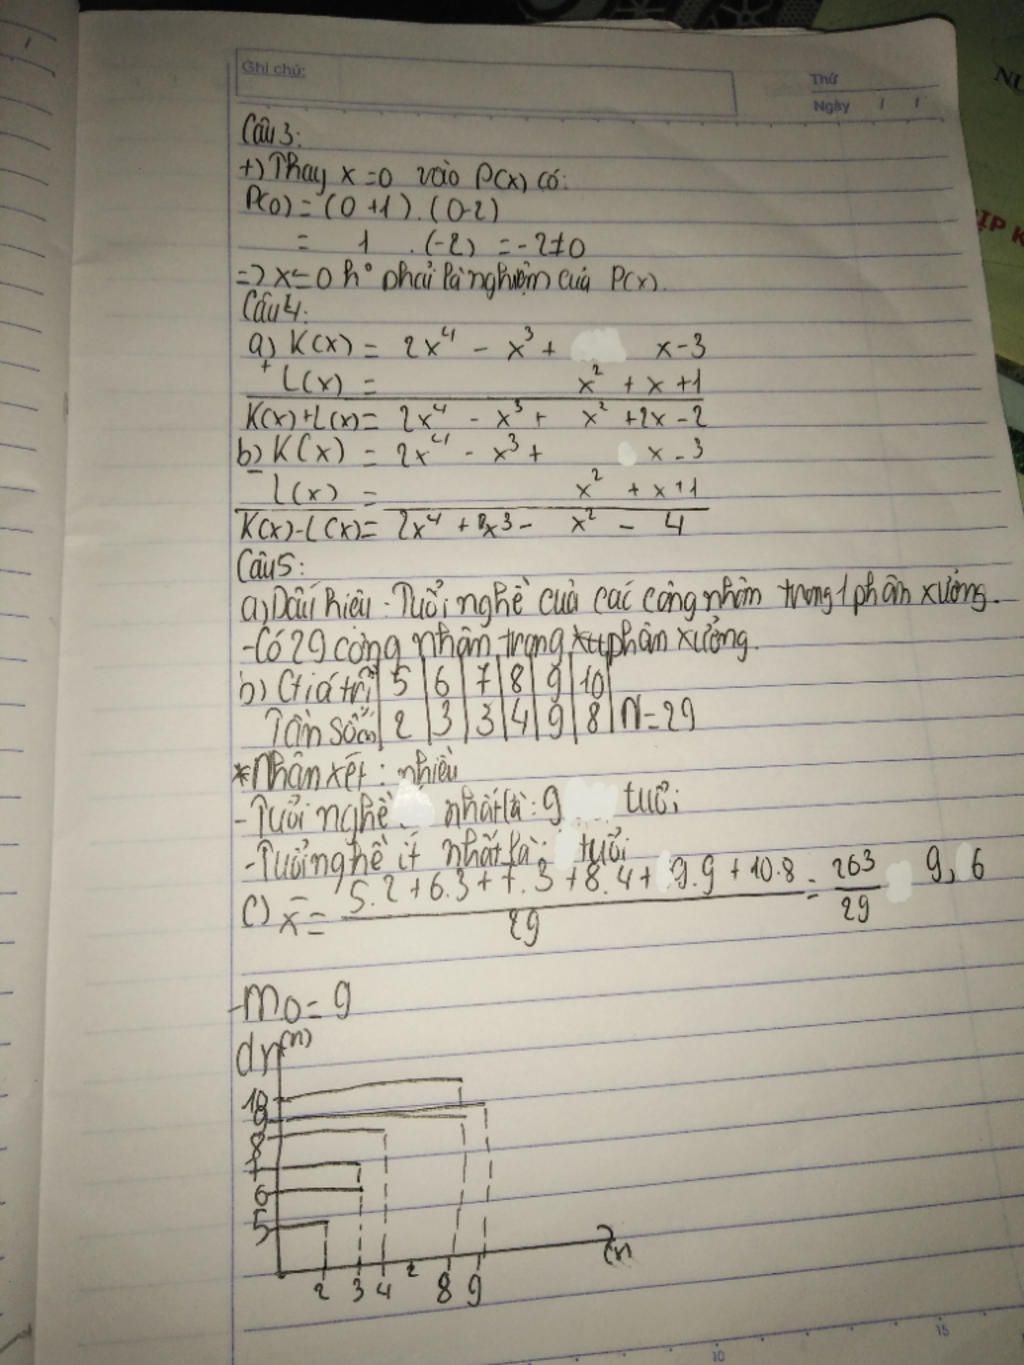 Ghi chú:
Thứ
Ngày / /
Câu 3:
+) Thay x = 0 vào P(x) có:
P(0) = (0+1).(0-2)
= 1 .(-2) = -2≠0
=> x=0 k° phải là nghiệm của P(x).
Câu 4:
a) K(x) = 2x⁴ - x³ + x-3
+ L(x) = x² + x +1
K(x)+L(x)= 2x⁴ - x³ + x² +2x -2
b) K(x) = 2x⁴ - x³ + x - 3
- L(x) = x² + x+1
K(x)-L(x)= 2x⁴ + x3 - x² - 4
Câu 5:
a) Dấu hiệu: Tuổi nghề của các công nhân trong 1 phân xưởng.
-Có 29 công nhân trong phân xưởng.
b) Giá trị 5 6 7 8 9 10
Tần số(n) 2 3 3 4 9 8 N=29
*Nhận xét: nhiều
-Tuổi nghề nhất là: 9 tuổi
-Tuổi nghề ít nhất là: tuổi
5.2+6.3+7.3+8.4+9.9+10.8 = 263 9,6
c) x̄ =
29 29
-Mo = 9
d) (n)
10
9
8
7
6
5
2 3 4 8 9